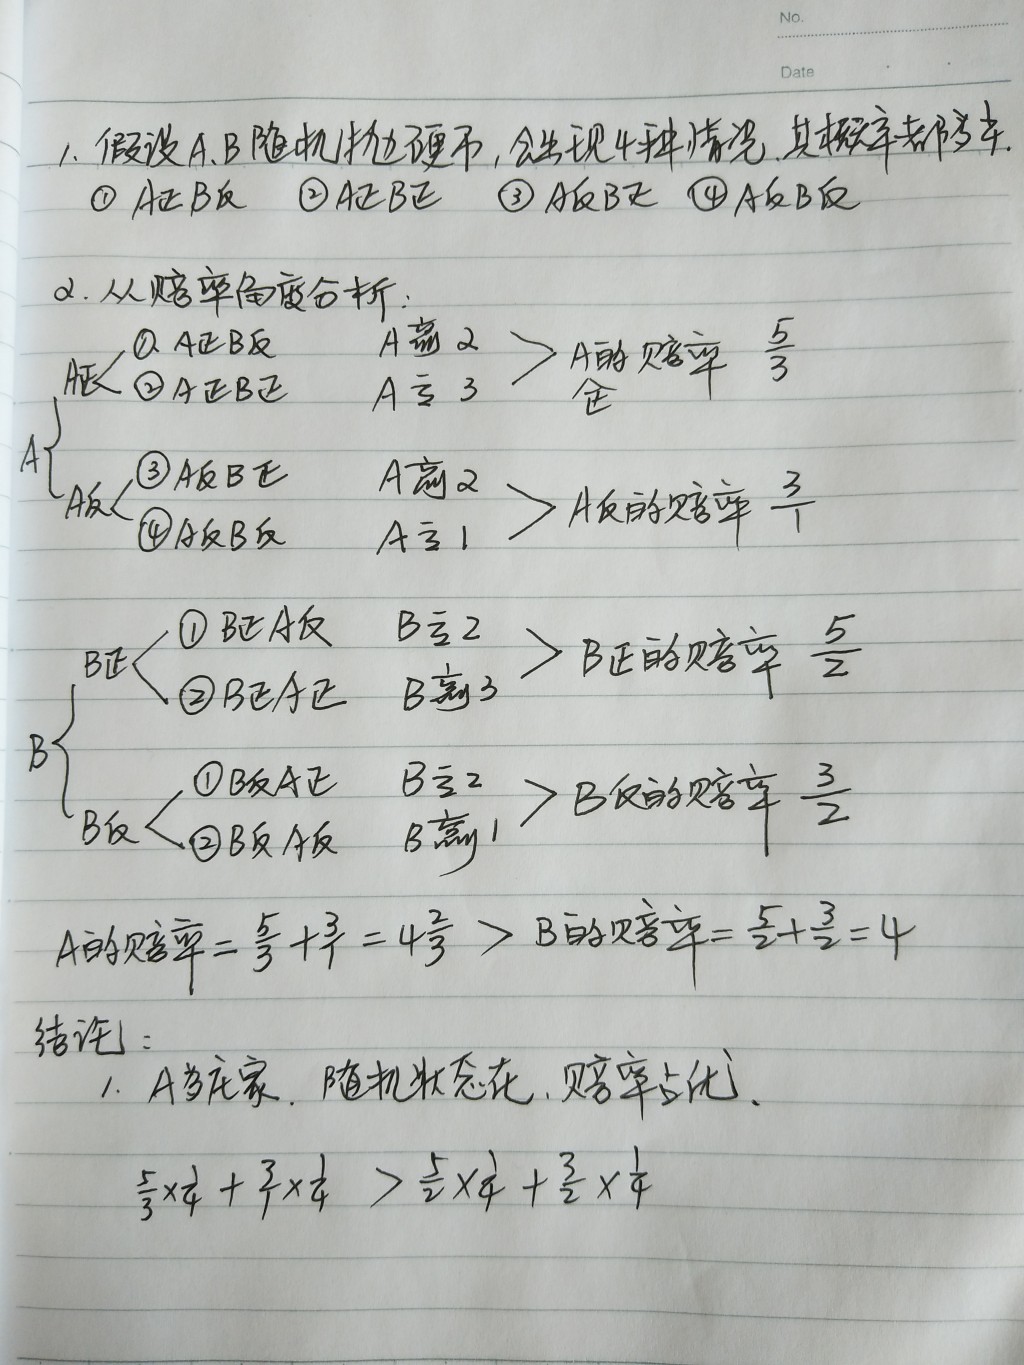 No.
Date
1. 假设A、B随机抛硬币,会出现4种情况,其概率都为
① A正B反 ② A正B正 ③ A反B正 ④ A反B反
2. 从赔率角度分析:
① A正B反 A赢2
A正 ② A正B正 A亏3 A的赔率 5/3
正
A
③ A反B正 A赢2
A反 ④ A反B反 A亏1 A反的赔率 3/1
① B正A反 B亏2
B正 ② B正A正 B赢3 B正的赔率 5/2
B
① B反A正 B亏2
B反 ② B反A反 B赢1 B反的赔率 3/2
A的赔率 = 5/3 + 3/1 = 4 2/3 > B的赔率 = 5/2 + 3/2 = 4
结论:
1. A当庄家、随机状态在、赔率占优、
5/3 × 1/4 + 3/1 × 1/4 > 5/2 × 1/4 + 3/2 × 1/4